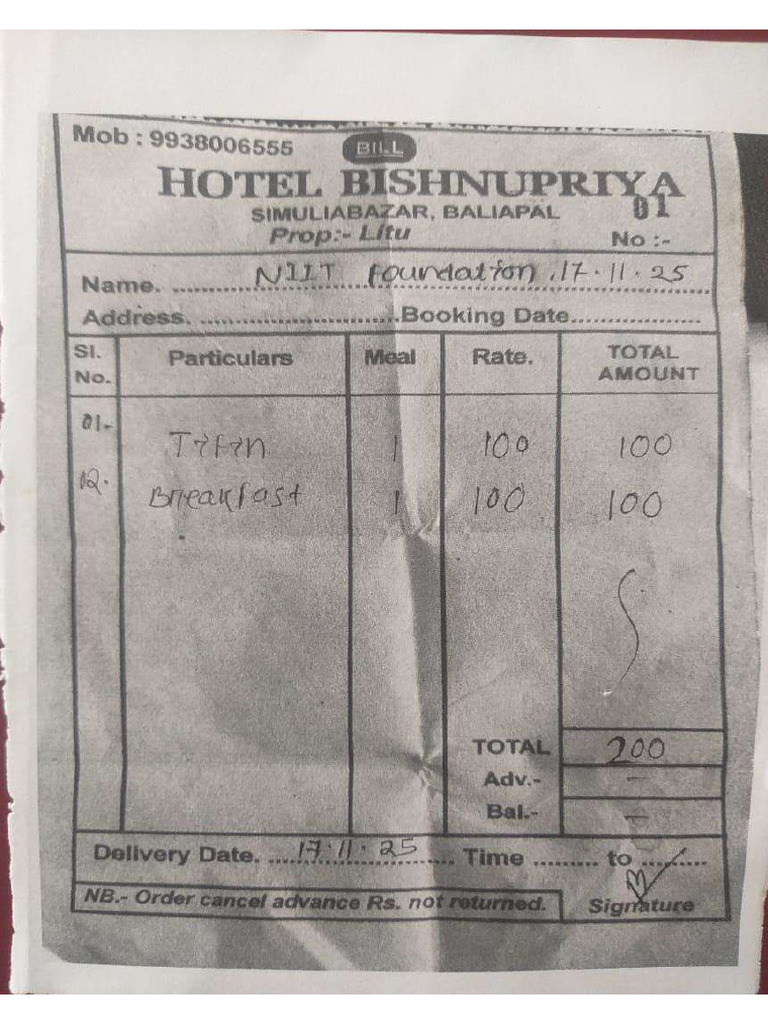 Mob : 9938006555
BILL
HOTEL BISHNUPRIYA
SIMULIABAZAR, BALIAPAL
01
Prop:- Litu
No :-
Name. NIIT Foundation, 17.11.25
Address. Booking Date.
Sl. No. Particulars Meal Rate. TOTAL AMOUNT
01- Tifin 1 100 100
02. Breakfast 1 100 100
TOTAL 200
Adv.- -
Bal.- -
Delivery Date. 17.11.25 Time to
NB.- Order cancel advance Rs. not returned. Signature